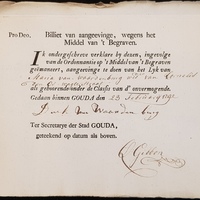 Pro Deo. Billiet van aangeevinge, wegens het
Middel van 't Begraven.
IK ondergeschreve verklare by deesen, ingevolge
van de Ordonnantie op 't Middel van 't Begraven
geëmaneert, aangeevinge te doen van het Lyk van
Maria van Waardenburg
als gehoorende onder de Classis van d' onvermogende.
Gedaan binnen GOUDA den 23 February
van Waarden
burg
Ter Secretarye der Stad GOUDA,
geteekend op datum als boven.